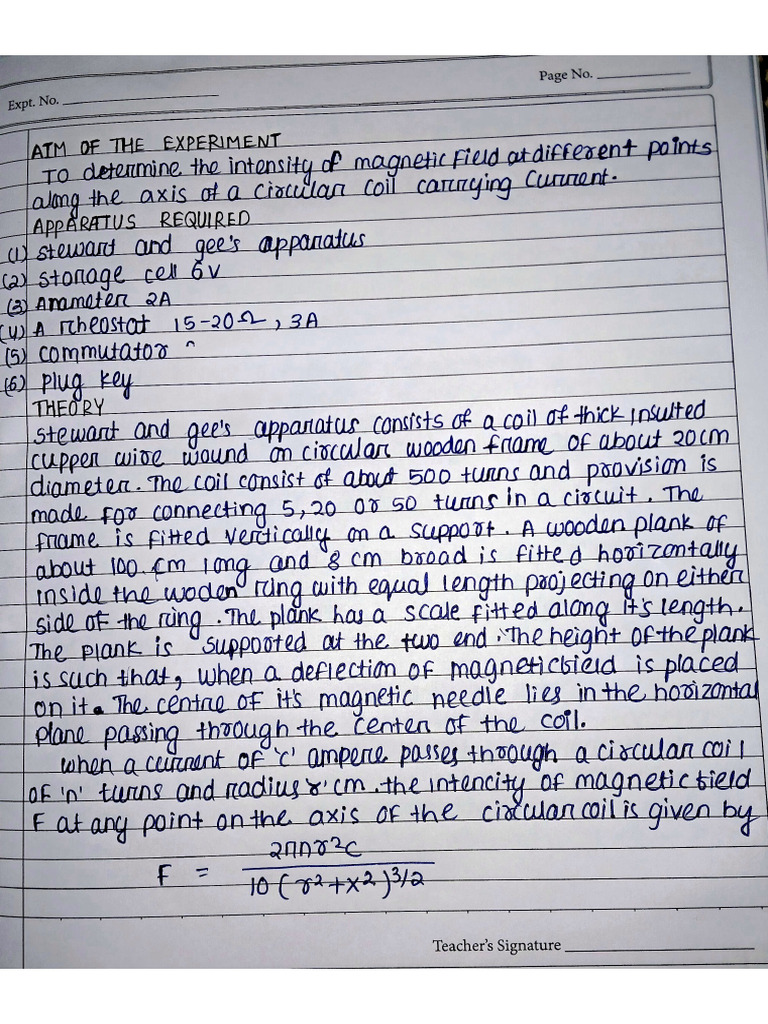 Page No.
Expt. No.
AIM OF THE EXPERIMENT
To determine the intensity of magnetic Field at different points
along the axis of a circular coil carrying Current.
APPARATUS REQUIRED
(1) stewart and gee's apparatus
(2) storage cell 6v
(3) Anameter 2A
(4) A rheostat 15-20Ω, 3A
(5) commutator
(6) plug key
THEORY
stewart and gee's apparatus consists of a coil of thick insulted
cupper wire wound on circular wooden frame of about 20cm
diameter. The coil consist of about 500 turns and provision is
made for connecting 5,20 or 50 turns in a circuit. The
frame is fitted vertically on a support. A wooden plank of
about 100 cm long and 8 cm broad is fitted horizontally
inside the woden ring with equal length projecting on either
side of the ring. The plank has a scale fitted along it's length.
The plank is suppooted at the two end. The height of the plank
is such that, when a deflection of magnetic field is placed
on it. The centre of it's magnetic needle lies in the horizontal
plane passing through the center of the coil.
when a current of 'c' ampere passes through a circular coil
of 'n' turns and radius r' cm. the intencity of magnetic field
F at any point on the axis of the circular coil is given by
F = 2πnr²c / 10(r²+x²)3/2
Teacher's Signature